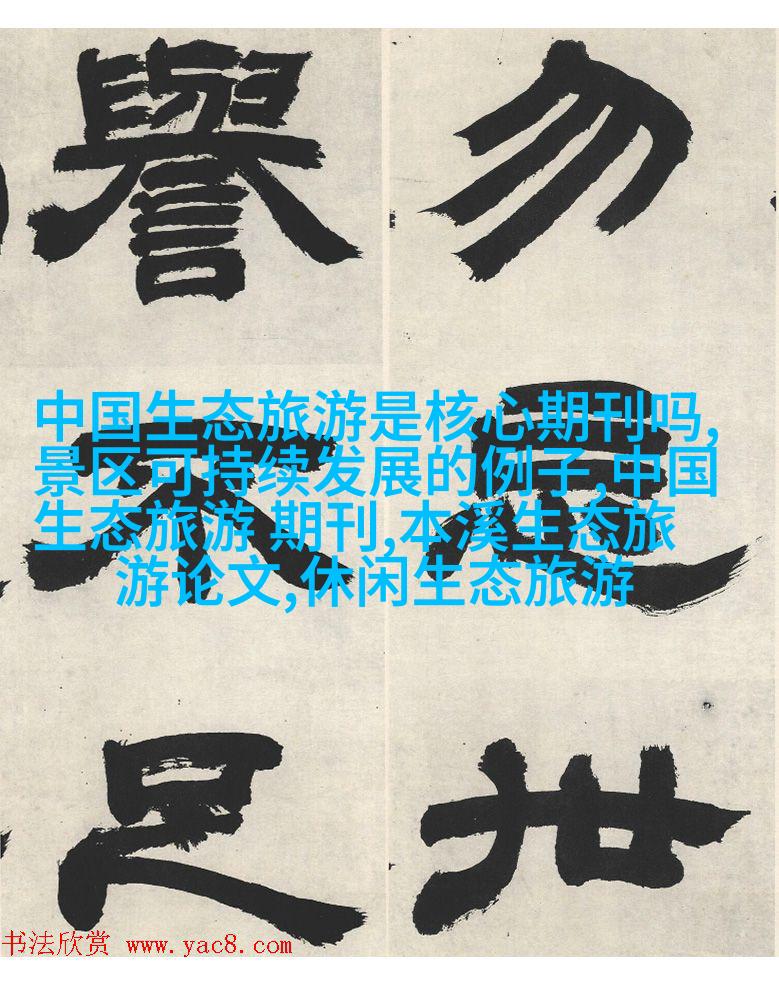 勿
世
譽不足
中国生态旅游是核心期刊吗,
景区可持续发展的例子,中国
生态旅游 期刊,本溪生态旅
游论文,休闲生态旅游
书法欣赏 www.yac8.com